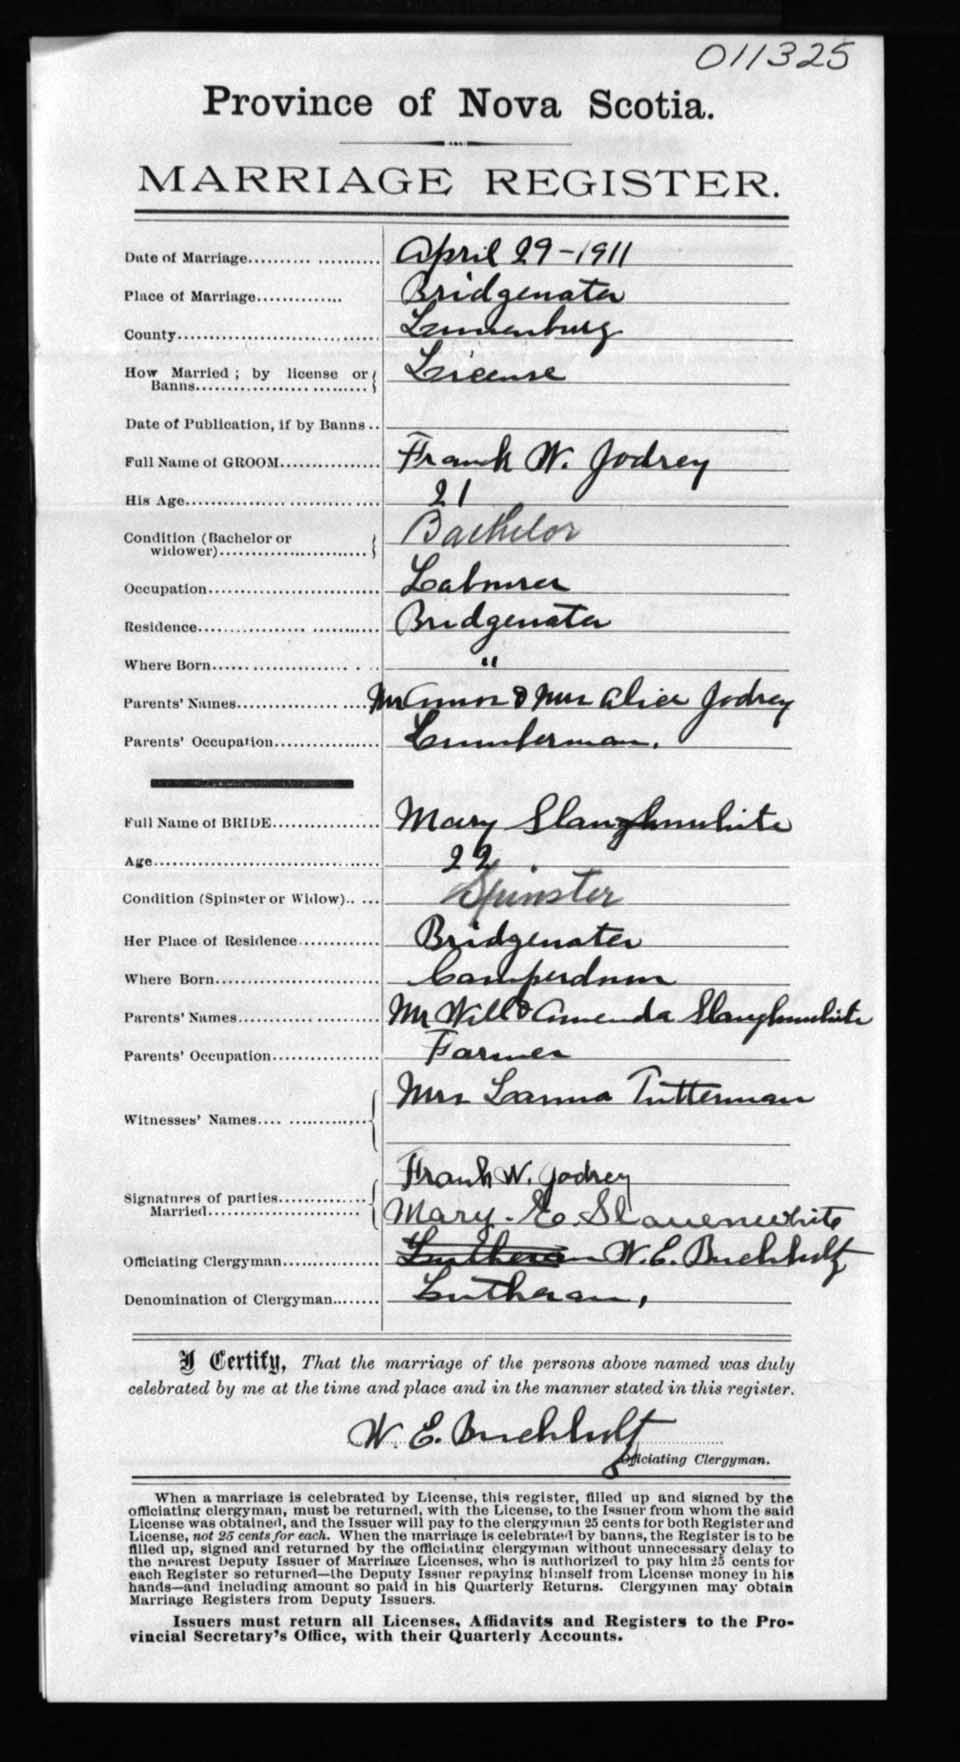 011325
Province of Nova Scotia.
MARRIAGE REGISTER.
Date of Marriage.......... ........... April 29-1911
Place of Marriage.............. Bridgewater
County.................................. Lunenburg
How Married ; by license or License
Banns.................. .........
Date of Publication, if by Banns ..
Full Name of GROOM................ Frank W. Jodrey
His Age................................. 21
Condition (Bachelor or Bachelor
widower)..........................
Occupation............................ Labourer
Residence................. ........... Bridgewater
Where Born...... ............... . . .. "
Parents' Names................. .... Mr Amos & Mrs Alice Jodrey
Parents' Occupation................. Lumberman.
Full Name of BRIDE................. Mary Slaughnwhite
Age...................................... 22
Condition (Spinster or Widow).. ... Spinster
Her Place of Residence............. Bridgewater
Where Born........................... Camperdown
Parents' Names............ ........... Mr Will & Amenda Slaughnwhite
Parents' Occupation................. Farmer
Mrs Tutterman
Witnesses' Names.... ...............
Frank W. Jodrey
Signatures of parties..............
Married........................... Mary. E. Slauenwhite
Officiating Clergyman............... Lutheran W. E. Buchholtz
Denomination of Clergyman........ Lutheran,
I Certify, That the marriage of the persons above named was duly
celebrated by me at the time and place and in the manner stated in this register.
W. E. Buchholtz
Officiating Clergyman.
When a marriage is celebrated by License, this register, filled up and signed by the
officiating clergyman, must be returned, with the License, to the Issuer from whom the said
License was obtained, and the Issuer will pay to the clergyman 25 cents for both Register and
License, not 25 cents for each. When the marriage is celebrated by banns, the Register is to be
filled up, signed and returned by the officiating clergyman without unnecessary delay to
the nearest Deputy Issuer of Marriage Licenses, who is authorized to pay him 25 cents for
each Register so returned—the Deputy Issuer repaying himself from License money in his
hands—and including amount so paid in his Quarterly Returns. Clergymen may obtain
Marriage Registers from Deputy Issuers.
Issuers must return all Licenses, Affidavits and Registers to the Pro-
vincial Secretary's Office, with their Quarterly Accounts.